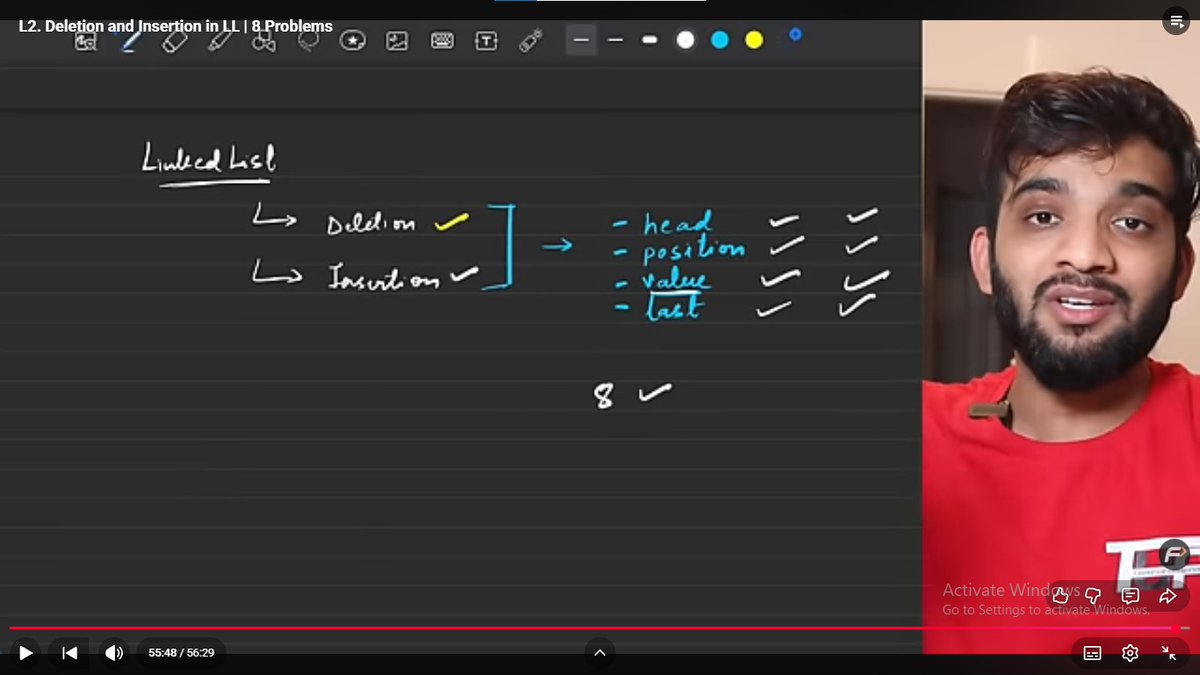 L2. Deletion and Insertion in LL | 8 Problems
Linked List
↳ Deletion ✓
↳ Insertion ✓
→
- head ✓ ✓
- position ✓ ✓
- value ✓ ✓
- last ✓ ✓
8 ✓
Activate Windows
Go to Settings to activate Windows.
55:48 / 56:29